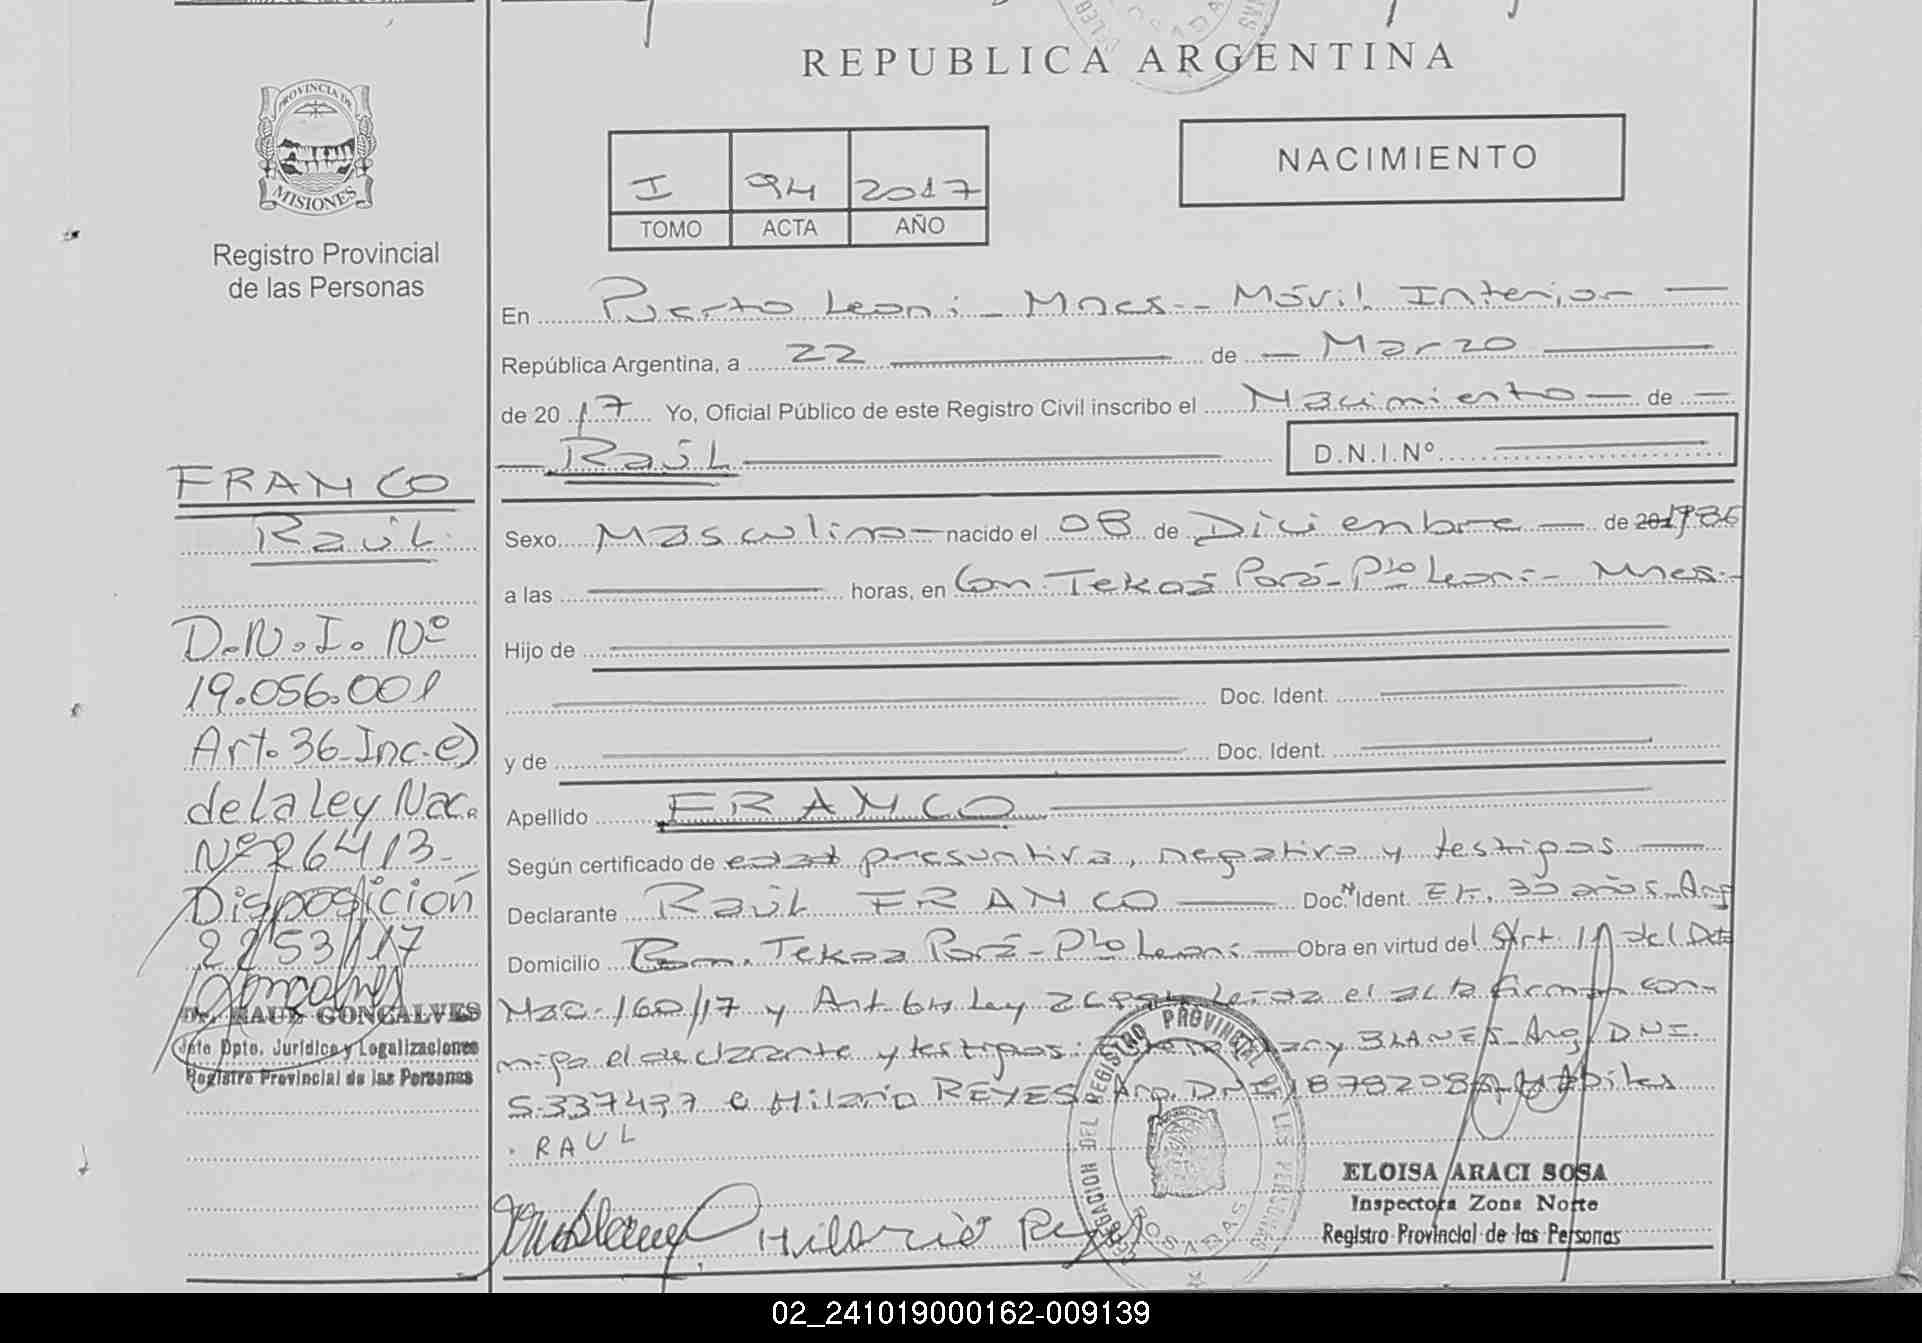 REPUBLICA ARGENTINA
PROVINCIA DE
MISIONES
Registro Provincial
de las Personas
I 94 2017
TOMO ACTA AÑO
NACIMIENTO
En Puerto Leoni - Mnes - Móvil Interior
República Argentina, a 22 de Marzo
de 20 17 Yo, Oficial Público de este Registro Civil inscribo el Nacimiento de
Raúl D.N.I.Nº
FRANCO
Raúl
D.N.I. Nº
19.056.001
Art. 36-Inc-e)
de la Ley Nac.
Nº 26413-
Disposición
2253/17
Dr. RAUL GONCALVES
Jefe Dpto. Jurídico y Legalizaciones
Registro Provincial de las Personas
Sexo Masculino nacido el 08 de Diciembre de 201986
a las horas, en Com. Tekoá Porá - Pto Leoni - Mnes.
Hijo de
Doc. Ident.
y de Doc. Ident.
Apellido FRANCO
Según certificado de edad presuntiva, negativa y testigos
Declarante Raúl FRANCO Doc. Ident. 30 años Arg
Domicilio Com. Tekoa Porá - Pto Leoni Obra en virtud del Art. 1º del Dto
Nac. 160/17 y Art. 64 Ley leída el acta firman con-
migo el declarante y testigos: BLANES - Arg. D.N.I.
5.337497 e Hilario REYES Arg. DNI hábiles
RAUL
Hilario
ELOISA ARACI SOSA
Inspectora Zona Norte
Registro Provincial de las Personas
DEL REGISTRO PROVINCIAL DE LAS PERSONAS
POSADAS
02_241019000162-009139